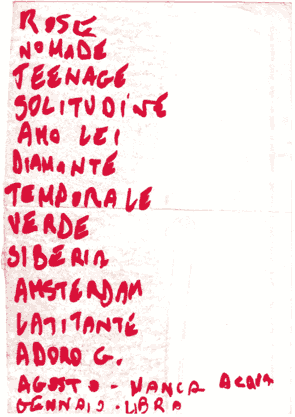 ROSE
NOMADE
TEENAGE
SOLITUDINE
AMO LEI
DIAMANTE
TEMPORALE
VERDE
SIBERIA
AMSTERDAM
LATITANTE
ADORO G.
AGOSTO - MANCA ACQUA
GENNAIO - LIBRA